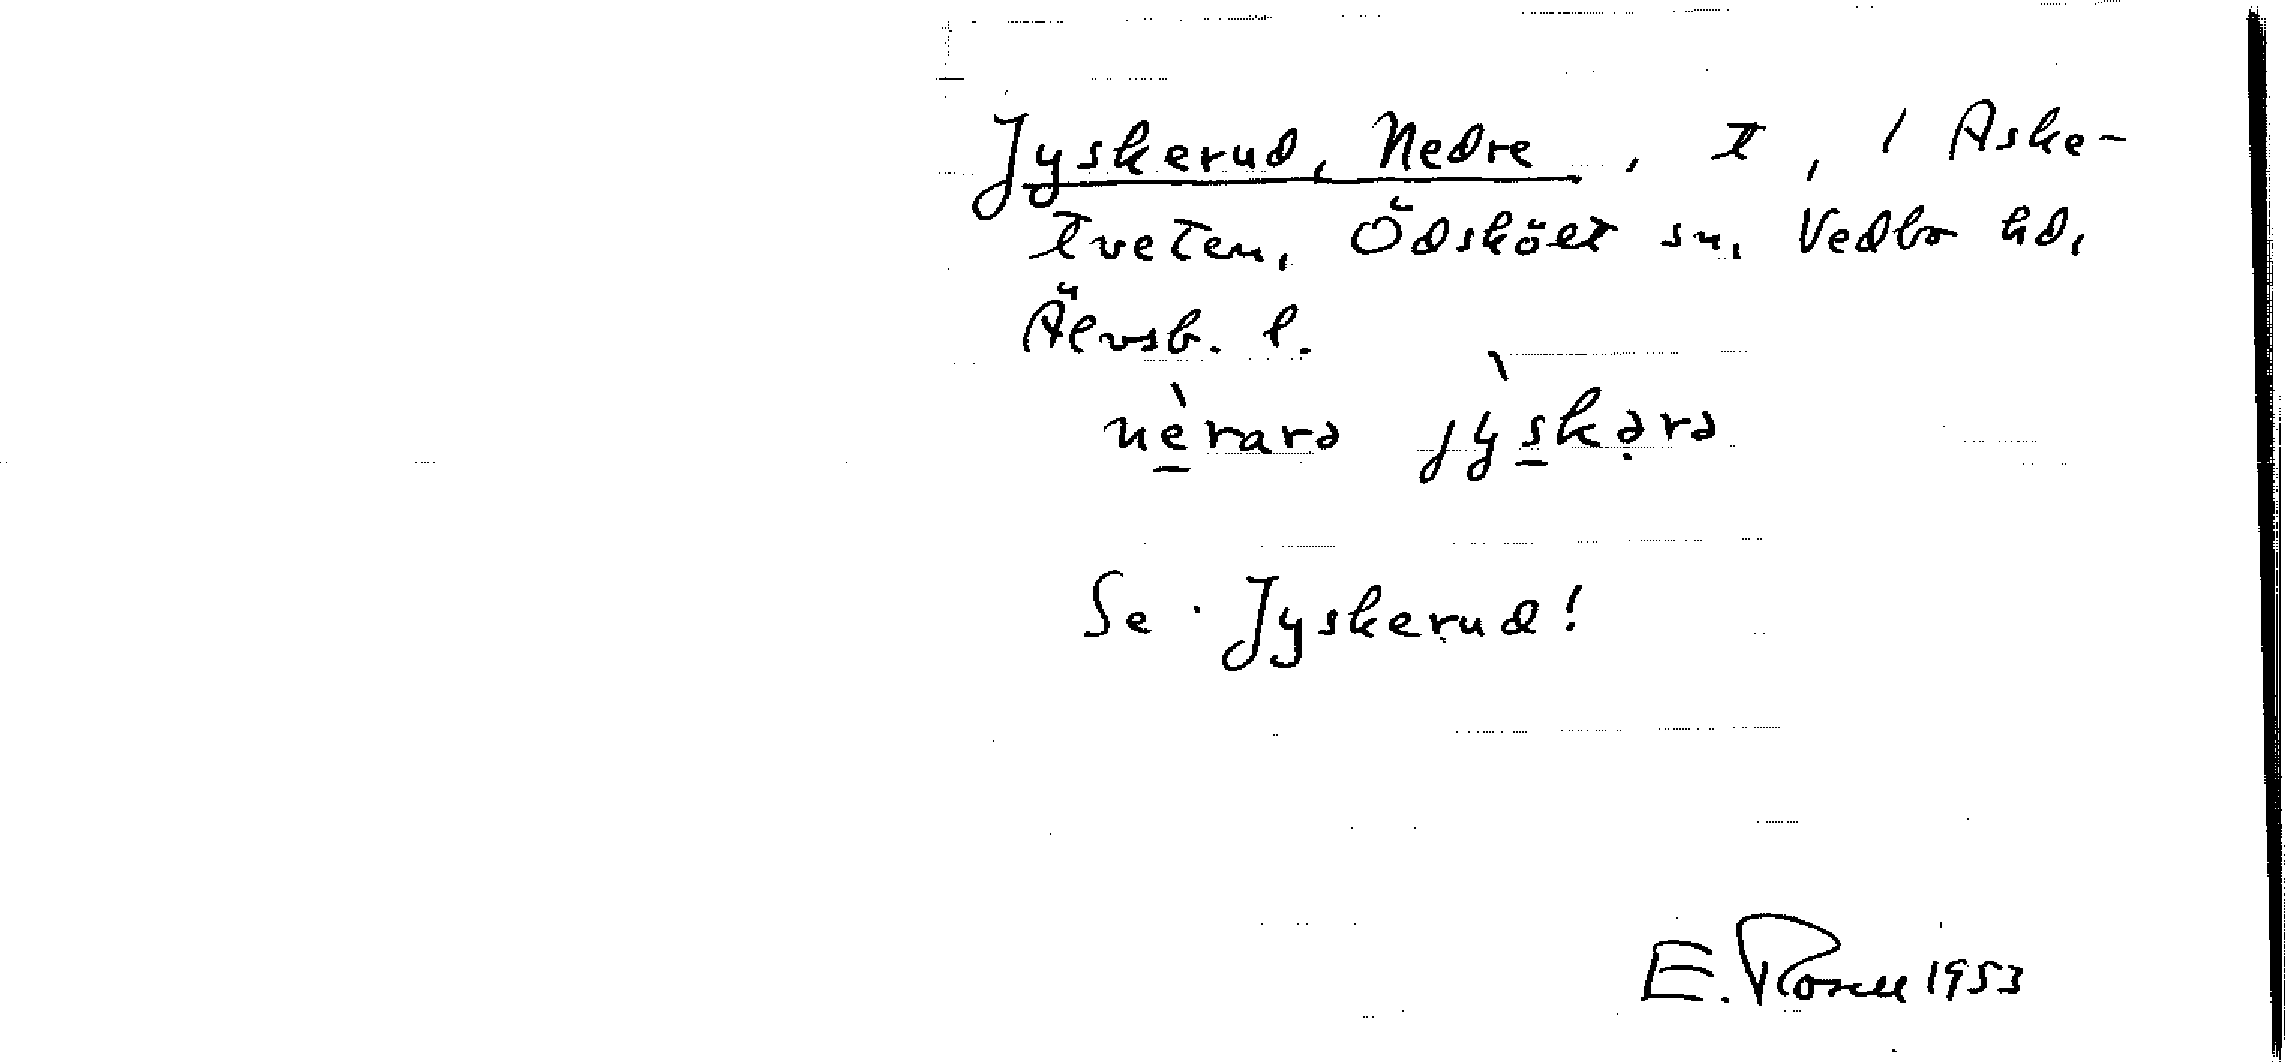 Jyskerud, Nedre, t, i Aske-
tveten, Ödskölt sn, Vedbo hd,
Älvsb. l.
nè̱rarə jỳs̱kə̣rə
Se Jyskerud!
E. Rosell 1953